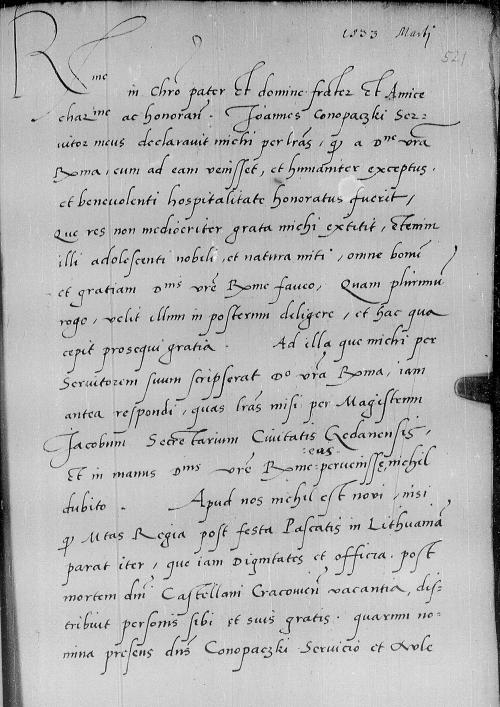 1533 Martij
521
R
me in Chro pater et domine frater et Amice
char me ac honoran. Joannes Conopaczki Ser-
uitor meus declarauit michi per lras, qp a Dne vra
Rma, cum ad eam venisset, et humaniter exceptus,
et beneuolenti hospitalitate honoratus fuerit,
Que res non mediocriter grata michi extitit, etenim
illi adolescenti nobili, et natura miti, omne bonu
et gratiam Dnis vre Rme faueo, Quam plurimu
rogo, velit illum in posterum diligere, et hac qua
cepit prosequi gratia. Ad illa que michi per
Seruitorem suum scripserat Do vra Rma, iam
antea respondi, quas lras misi per Magistrum
Jacobum Secretarium Ciuitatis Gedanensis,
Et in manus Dnis vre Rme eas peruenisse, nichil
dubito. Apud nos nichil est noui, nisi
qp Mtas Regia post festa Pascatis in Lithuania
parat iter, que iam Dignitates et officia post
mortem dni Castellani Cracouien vacantia, dis-
tribuit personis sibi et suis gratis. quarum no-
mina presens dns Conopaczki Seruicio et